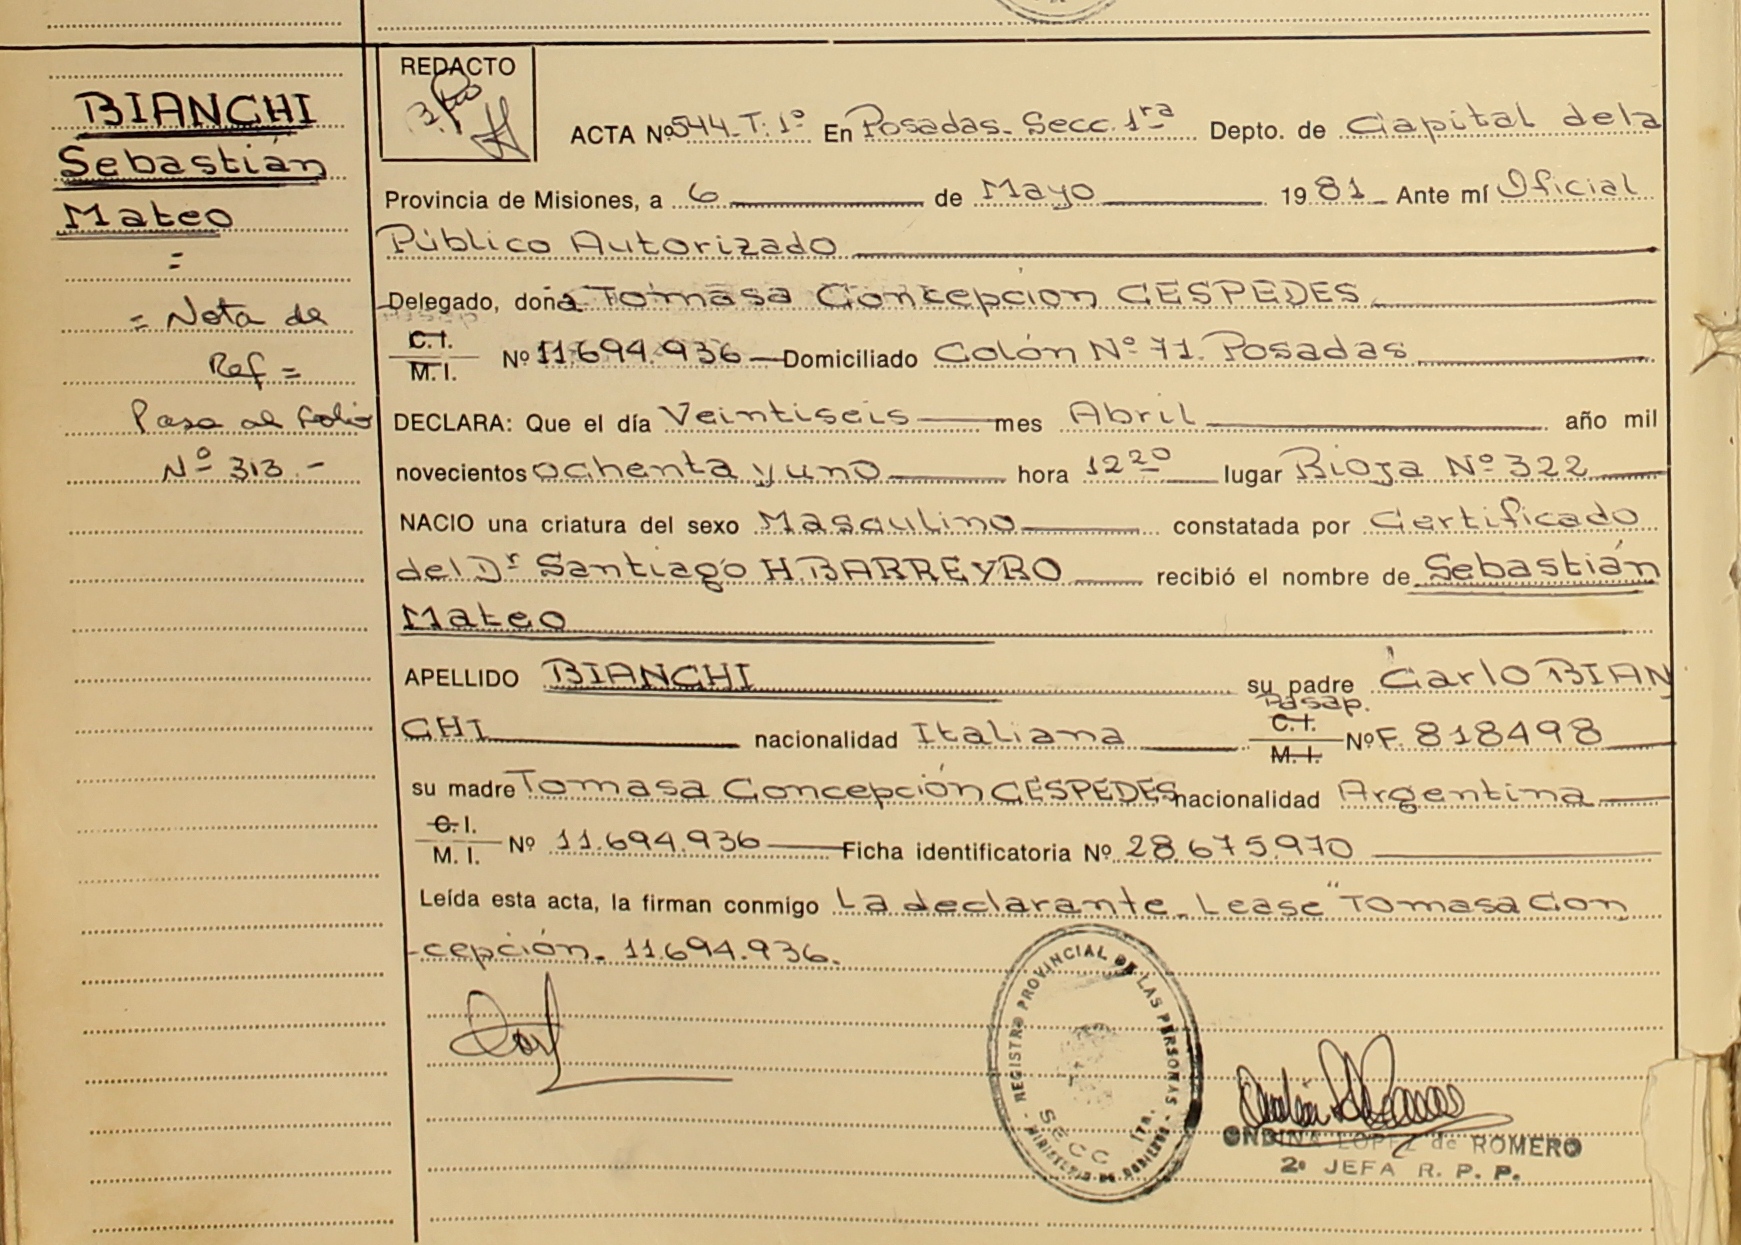 BIANCHI
Sebastián
Mateo
=
= Nota de
Ref =
Pasa al folio
Nº 313.-
REDACTO
ACTA Nº 544-T: 1º En Posadas- Secc. 1ra Depto. de Capital de la
Provincia de Misiones, a 6 de Mayo 1981 Ante mí Oficial
Público Autorizado
Delegado, doña Tomasa Concepción CESPEDES
C.I. M.I. Nº 11.694.936 Domiciliado Colón Nº 71. Posadas
DECLARA: Que el día Veintiseis mes Abril año mil
novecientos ochenta y uno hora 12 20 lugar Rioja Nº 322
NACIO una criatura del sexo Masculino constatada por Certificado
del Dr Santiago H. BARREYRO recibió el nombre de Sebastián
Mateo
APELLIDO BIANCHI su padre Carlo BIAN
CHI nacionalidad Italiana Pasap. C.I. M.I. Nº F. 818498
su madre Tomasa Concepción CESPEDES nacionalidad Argentina
C.I. M.I. Nº 11.694.936 Ficha identificatoria Nº 28.675.970
Leída esta acta, la firman conmigo La declarante- Lease "Tomasa Con
-cepción- 11.694.936.
REGISTRO PROVINCIAL DE LAS PERSONAS
MINISTERIO DE GOBIERNO
SECC 1ra.
ONDINA LOPEZ de ROMERO
2º JEFA R. P. P.